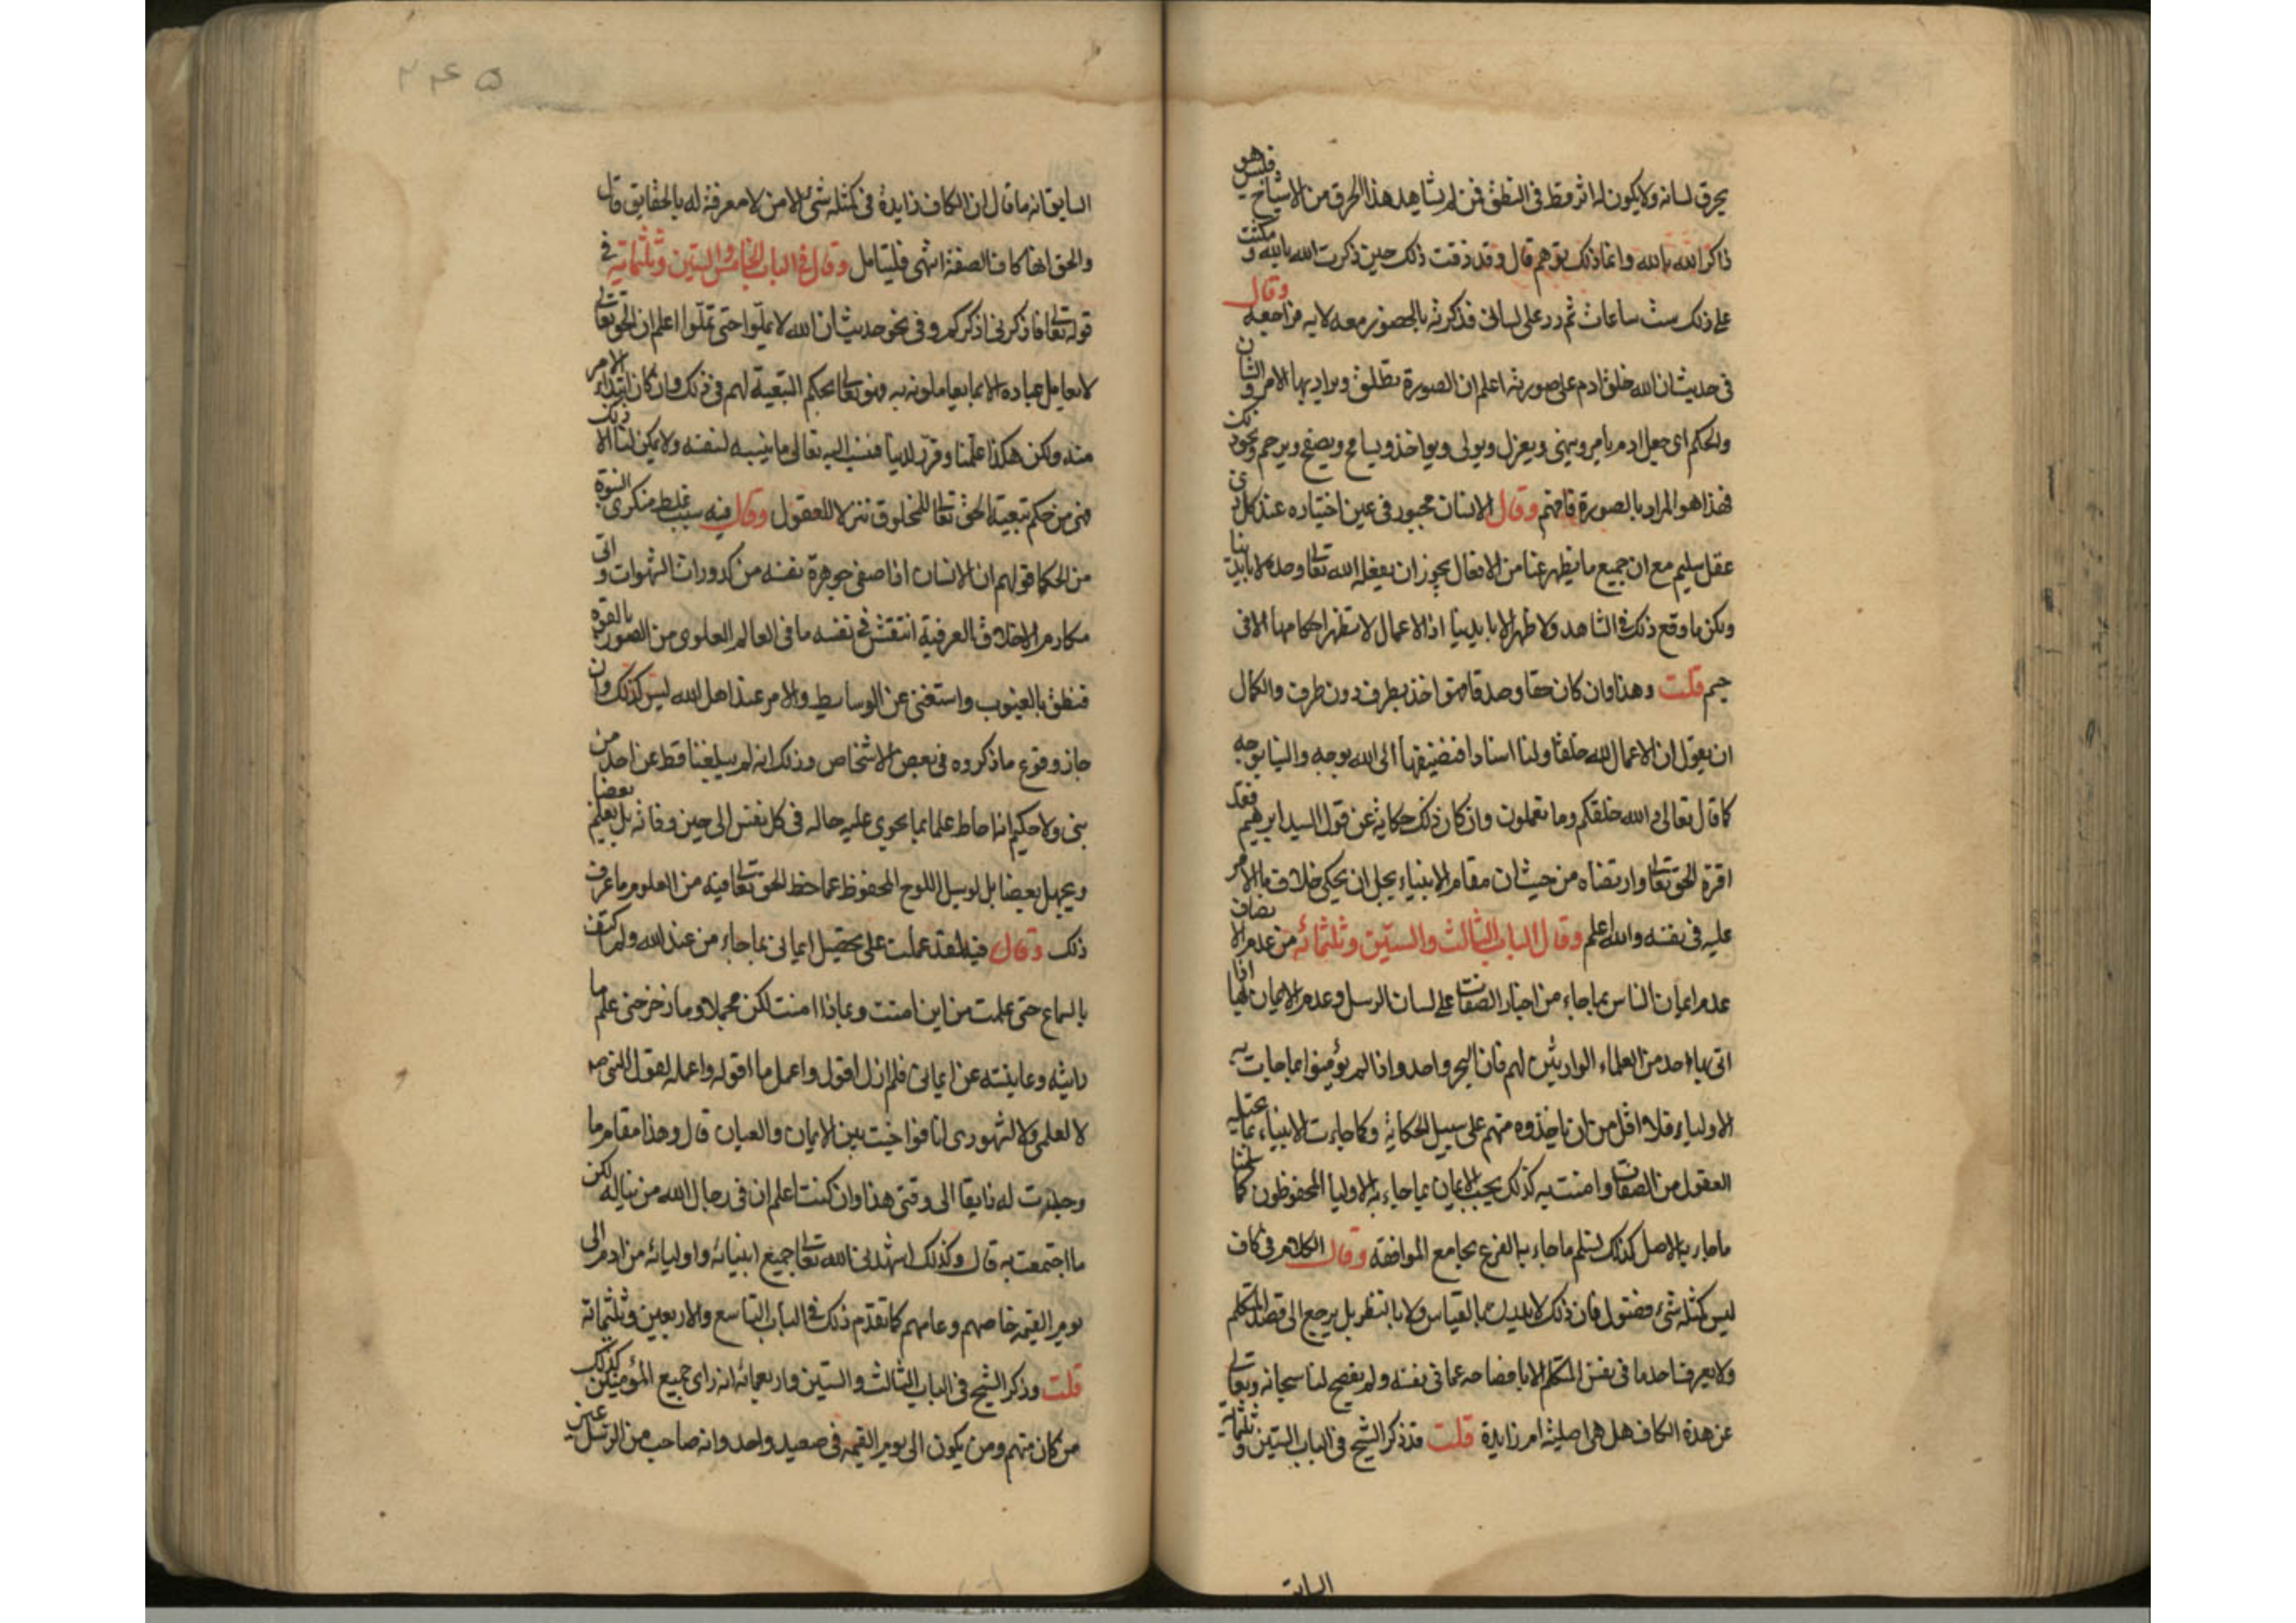 يحرق لسانه ولا يكون له اثر قط في النطق فمن لم يشاهد هذا الحرق من الاشياخ فليس هو
ذاكرا لله بالله وانما ذلك توهم قال وقد ذقت ذلك حين ذكرت الله بالله ومكثت
على ذلك ست ساعات ثم رد على لساني فذكرته بالحضور معه لا به فراجعه وقال
في حديث ان الله خلق ادم على صورته اعلم ان الصورة تطلق ويراد بها الامر والشان
والحكم اى جعل ادم يامر وينهى ويعزل ويولى ويواخذ ويسامح ويصفح ويرحم ونحو ذلك
فهذا هو المراد بالصورة فافهم وقال الانسان مجبور في عين اختياره عند كل ذى
عقل سليم مع ان جميع ما يظهر عنا من الافعال يجوز ان يفعله الله تعالى وحده لا بايدينا
ولكن ما وقع ذلك في الشاهد ولا ظهر الا بايدينا اذ الاعمال لا تظهر احكامها الا في
جسم قلت وهذا وان كان حقا وصدقا فهو اخذ بطرف دون طرف والكمال
ان يقول ان الاعمال لله خلقا ولنا اسنادا فنضيفها الى الله بوجه والينا بوجه
كما قال تعالى والله خلقكم وما تعملون وان كان ذلك حكاية عن قول السيد ابرهيم فقد
اقره الحق تعالى وارتضاه من حيث ان مقام الانبياء يجل ان يحكى خلاف ما الامر
عليه في نفسه والله اعلم وقال الباب الثالث والستين وثلثمائه من عدم الانصاف
عدم ايمان الناس بما جاء من اخبار الصفات على لسان الرسل وعدم الايمان بها اذا
اتى بها احد من العلماء الوارثين لهم فان البحر واحد واذا لم يؤمنوا بما جات به
الاولياء فلا اقل من ان ياخذوه منهم على سبيل الحكاية وكما جاءت الانبياء بما تحيله
العقول من الصفات وامنت به كذلك يجب الايمان بما جاء به الاوليا المحفوظون كما سلمنا
ما جاء به الاصل كذلك نسلم ما جاء به الفرع بجامع الموافقه وقال الكلام في كاف
ليس كمثله شئ فضول فان ذلك لا يدرك بالقياس ولا بالنظر بل يرجع الى قصد المتكلم
ولا يعرف احد ما في نفس المتكلم الا بافصاحه عما في نفسه ولم يفصح لنا سبحانه وتعالى
عن هذة الكاف هل هي اصلية ام زايدة قلت قد ذكر الشيخ في الباب الستين وثلثمائه
السابق
٢٤٥
السابق انه ما قال ان الكاف زايدة في كمثله شئ الا من لا معرفة له بالحقايق قال
والحق انها كاف الصفة انتهى فليتامل وقال في الباب الخامس والستين وثلثمائة في
قوله تعالى فاذكروني اذكركم وفي نحو حديث ان الله لا يملّ حتى تملّوا اعلم ان الحق تعالى
لا يعامل عباده الا بما يعاملونه به فهو تعالى بحكم التبعية لهم في ذلك وان كان ابتداء الامر
منه ولكن هكذا علمنا وقرر لدينا فننسب اليه تعالى ما ينسبه لنفسه ولا يمكن لنا الا ذلك
فهى من حكم تبعية الحق تعالى للمخلوق تنزلا للعقول وقال فيه سبب غلط منكرى النبوة
من الحكما قولهم ان الانسان اذا صفى جوهرة نفسه من كدورات الشهوات واتى
مكارم الاخلاق العرفية انتقش في نفسه ما في العالم العلوى من الصور بالقوة
فنطق بالغيوب واستغنى عن الوسايط والامر عند اهل الله ليس كذلك وان
جاز وقوع ما ذكروه في بعض الاشخاص وذلك انه لم يبلغنا قط عن احد من
نبى ولا حكيم انه احاط علما بما يحوى عليه حاله في كل نفس الى حين وفاته بل يعلم بعضا
ويجهل بعضا بل لو سيل اللوح المحفوظ عما حظ الحق تعالى فيه من العلوم ما عرف
ذلك وقال فيه لقد عملت على تحصيل ايمانى بما جاء من عند الله ولم اكتف
بالسماع حتى علمت من اين امنت وبماذا امنت لكن مجملا وما زحزحنى علم ما
رايته وعاينته عن ايمانى فلم ازل اقول واعمل ما اقوله واعمله لقول النبي ص
لا لعلمى ولا لشهودى انا فواخيت بين الايمان والعيان قال وهذا مقام ما
وجدت له ذايقا الى وقتى هذا وان كنت اعلم ان في رجال الله من يناله لكن
ما اجتمعت به قال وكذلك اشهدنى الله تعالى جميع انبيائه واوليائه من ادم الى
يوم القيمه خاصهم وعامهم كما تقدم ذلك في الباب التاسع والاربعين وثلثمائة
قلت وذكر الشيخ في الباب الثالث والستين واربعمائه انه راى جميع المؤمنين كذلك
من كان منهم ومن يكون الى يوم القيمه في صعيد واحد وانه صاحب من الرسل غير